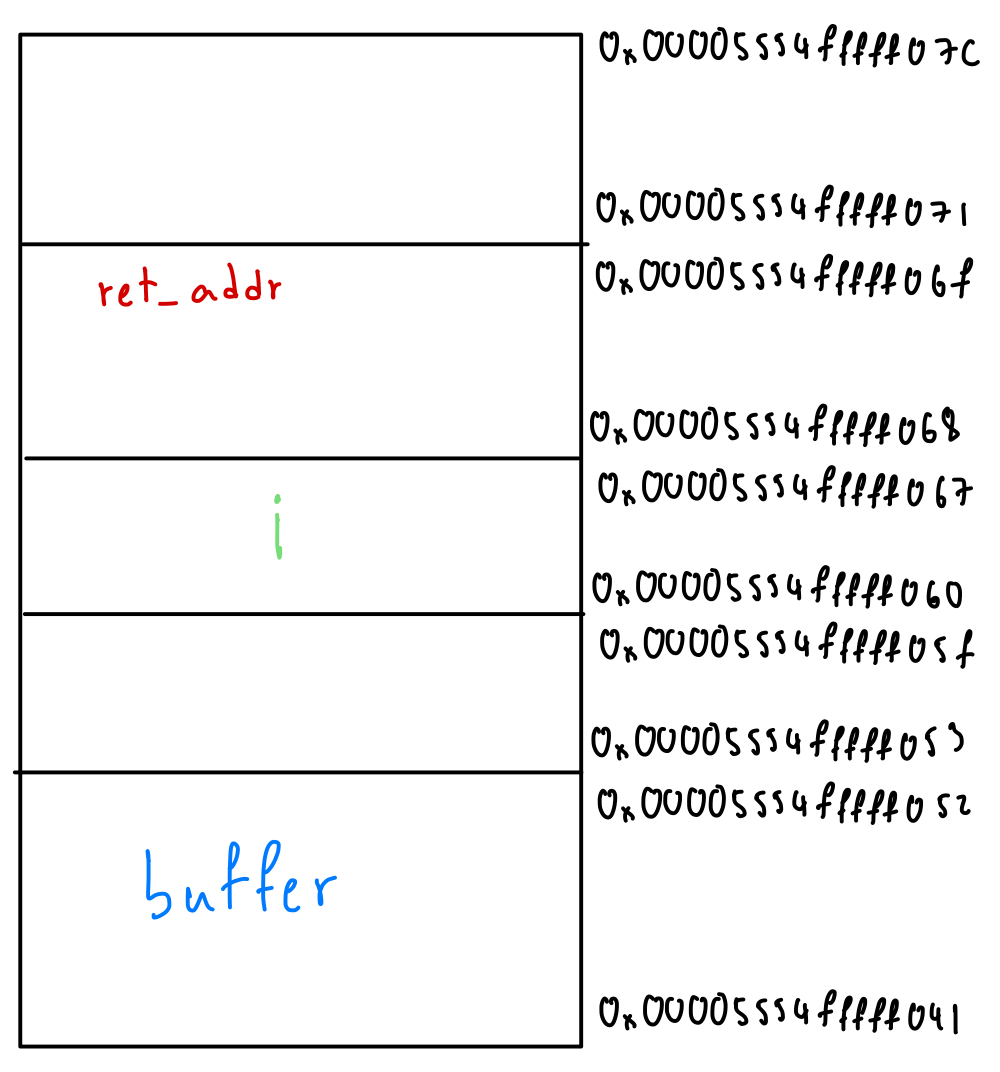 0x00005554fffff07c
0x00005554fffff071
ret_addr
0x00005554fffff06f
0x00005554fffff068
i
0x00005554fffff067
0x00005554fffff060
0x00005554fffff05f
0x00005554fffff053
0x00005554fffff052
buffer
0x00005554fffff041